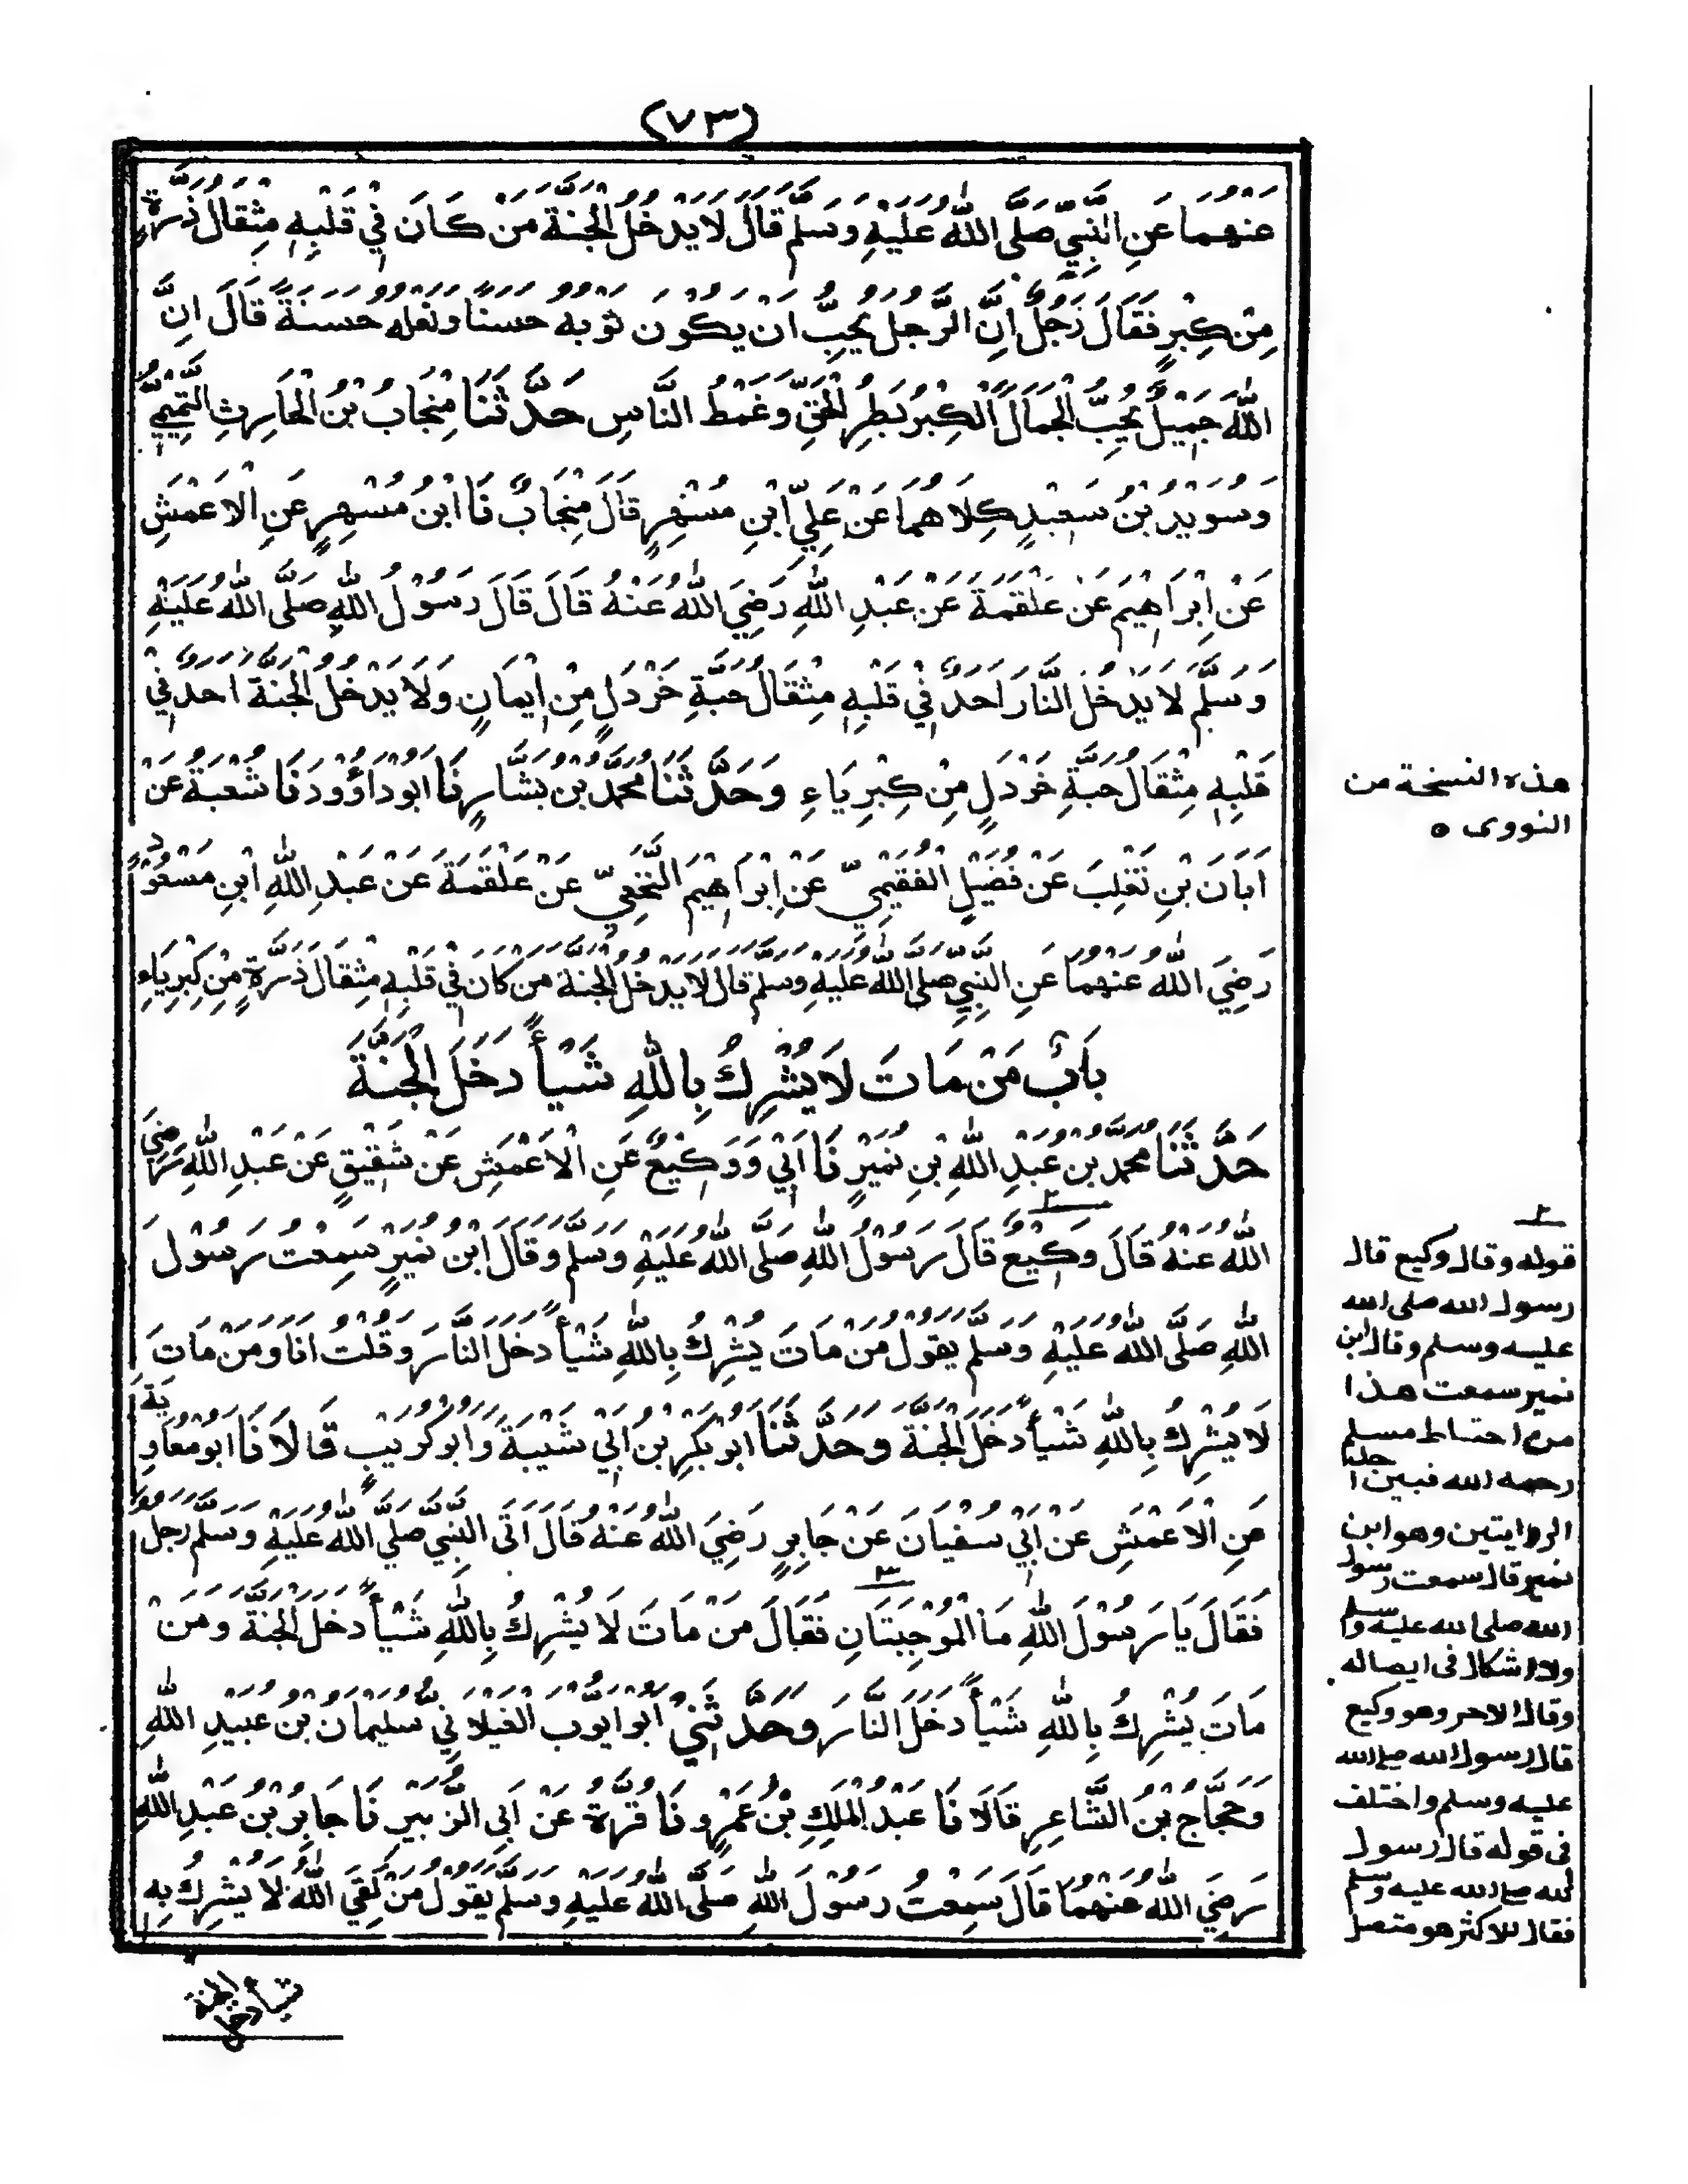 (٧٣)
عَنْهُمَا عَنِ النَّبِيِّ صَلَّى اللهُ عَلَيْهِ وَسَلَّمَ قَالَ لَا يَدْخُلُ الْجَنَّةَ مَنْ كَانَ فِيْ قَلْبِهٖ مِثْقَالُ ذَرَّةٍ
مِنْ كِبْرٍ فَقَالَ رَجُلٌ اِنَّ الرَّجُلَ يُحِبُّ اَنْ يَكُوْنَ ثَوْبُهُ حَسَنًا وَنَعْلُهُ حَسَنَةً قَالَ اِنَّ
اللهَ جَمِيْلٌ يُحِبُّ الْجَمَالَ الْكِبْرُ بَطَرُ الْحَقِّ وَغَمْطُ النَّاسِ حَدَّثَنَا مِنْجَابُ بْنُ الْحَارِثِ التَّمِيْمِيُّ
وَسُوَيْدُ بْنُ سَعِيْدٍ كِلَاهُمَا عَنْ عَلِيِّ ابْنِ مُسْهِرٍ قَالَ مِنْجَابٌ نَا ابْنُ مُسْهِرٍ عَنِ الْاَعْمَشِ
عَنْ اِبْرَاهِيْمَ عَنْ عَلْقَمَةَ عَنْ عَبْدِ اللهِ رَضِيَ اللهُ عَنْهُ قَالَ قَالَ رَسُوْلُ اللهِ صَلَّى اللهُ عَلَيْهِ
وَسَلَّمَ لَا يَدْخُلُ النَّارَ اَحَدٌ فِيْ قَلْبِهٖ مِثْقَالُ حَبَّةِ خَرْدَلٍ مِنْ اِيْمَانٍ وَلَا يَدْخُلُ الْجَنَّةَ اَحَدٌ فِيْ
قَلْبِهٖ مِثْقَالُ حَبَّةِ خَرْدَلٍ مِنْ كِبْرِيَاءِ وَحَدَّثَنَا مُحَمَّدُ بْنُ بَشَّارٍ نَا اَبُوْ دَاؤُوْدَ نَا شُعْبَةُ عَنْ
اَبَانَ بْنِ تَغْلِبَ عَنْ فُضَيْلٍ الْفُقَيْمِيِّ عَنْ اِبْرَاهِيْمَ النَّخَعِيِّ عَنْ عَلْقَمَةَ عَنْ عَبْدِ اللهِ ابْنِ مَسْعُوْدٍ
رَضِيَ اللهُ عَنْهُمَا عَنِ النَّبِيِّ صَلَّى اللهُ عَلَيْهِ وَسَلَّمَ قَالَ لَا يَدْخُلُ الْجَنَّةَ مَنْ كَانَ فِيْ قَلْبِهٖ مِثْقَالُ ذَرَّةٍ مِنْ كِبْرِيَاءِ
بَابٌ مَنْ مَاتَ لَا يُشْرِكُ بِاللهِ شَيْأً دَخَلَ الْجَنَّةَ
حَدَّثَنَا مُحَمَّدُ بْنُ عَبْدِ اللهِ بْنِ نُمَيْرٍ نَا اَبِيْ وَوَكِيْعٌ عَنِ الْاَعْمَشِ عَنْ شَقِيْقٍ عَنْ عَبْدِ اللهِ رَضِيَ
اللهُ عَنْهُ قَالَ وَكِيْعٌ قَالَ رَسُوْلُ اللهِ صَلَّى اللهُ عَلَيْهِ وَسَلَّمَ وَقَالَ ابْنُ نُمَيْرٍ سَمِعْتُ رَسُوْلَ
اللهِ صَلَّى اللهُ عَلَيْهِ وَسَلَّمَ يَقُوْلُ مَنْ مَاتَ يُشْرِكُ بِاللهِ شَيْأً دَخَلَ النَّارَ وَقُلْتُ اَنَا وَمَنْ مَاتَ
لَا يُشْرِكُ بِاللهِ شَيْأً دَخَلَ الْجَنَّةَ وَحَدَّثَنَا اَبُوْ بَكْرِ بْنُ اَبِيْ شَيْبَةَ وَاَبُوْ كُرَيْبٍ قَالَا نَا اَبُوْ مُعَاوِيَةَ
عَنِ الْاَعْمَشِ عَنْ اَبِيْ سُفْيَانَ عَنْ جَابِرٍ رَضِيَ اللهُ عَنْهُ قَالَ اَتَى النَّبِيَّ صَلَّى اللهُ عَلَيْهِ وَسَلَّمَ رَجُلٌ
فَقَالَ يَا رَسُوْلَ اللهِ مَا الْمُوْجِبَتَانِ فَقَالَ مَنْ مَاتَ لَا يُشْرِكُ بِاللهِ شَيْأً دَخَلَ الْجَنَّةَ وَمَنْ
مَاتَ يُشْرِكُ بِاللهِ شَيْأً دَخَلَ النَّارَ وَحَدَّثَنِيْ اَبُوْ اَيُّوْبَ الْغَيْلَانِيُّ سُلَيْمَانُ بْنُ عُبَيْدِ اللهِ
وَحَجَّاجُ بْنُ الشَّاعِرِ قَالَا نَا عَبْدُ الْمَلِكِ بْنُ عَمْرٍو نَا قُرَّةُ عَنْ اَبِي الزُّبَيْرِ نَا جَابِرُ بْنُ عَبْدِ اللهِ
رَضِيَ اللهُ عَنْهُمَا قَالَ سَمِعْتُ رَسُوْلَ اللهِ صَلَّى اللهُ عَلَيْهِ وَسَلَّمَ يَقُوْلُ مَنْ لَقِيَ اللهَ لَا يُشْرِكُ بِهٖ
شيأ دخل الجنة
هذه النسخة من
النووى ٥
٢
قوله وقال وكيع قال
رسول الله صلى الله
عليه وسلم وقال ابن
نمير سمعت هذا
من احتياط مسلم
رحمه الله فبين
الروايتين وهو ابن
نمير قال سمعت رسول
الله صلى الله عليه وسلم
ولا اشكال فى ايصاله
وقال الاخر وهو وكيع
قال رسول الله صلى الله
عليه وسلم واختلف
فى قوله قال رسول
الله صلى الله عليه وسلم
فقال للاكثر هو متصل